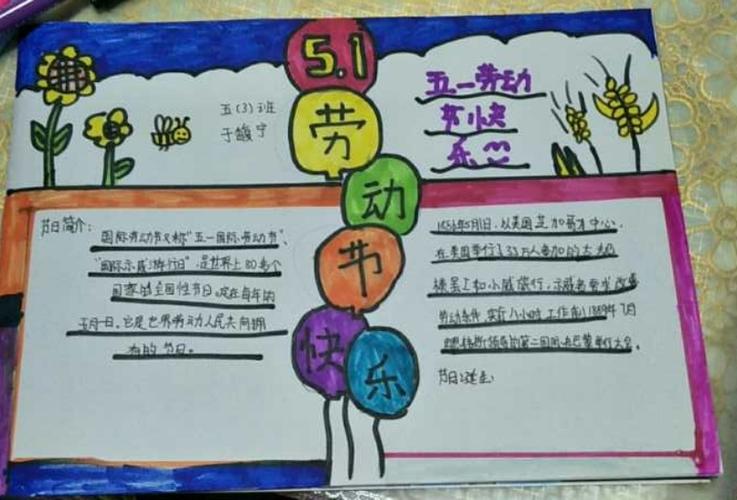 5.1
劳
动
节
快
乐
五(3)班
于馥宁
五一劳动
节快
乐
节日简介:
国际劳动节又称"五一国际劳动节"、
"国际示威游行日",是世界上80多个
国家的全国性节日。定在每年的
五月一日。它是世界劳动人民共同拥
有的节日。
1886年5月1日,以美国芝加哥为中心,
在美国举行了35万人参加的大规
模罢工和示威游行,示威者要求改善
劳动条件,实行八小时工作制。1889年7月
领导的第二国际在巴黎举行大会。
节日